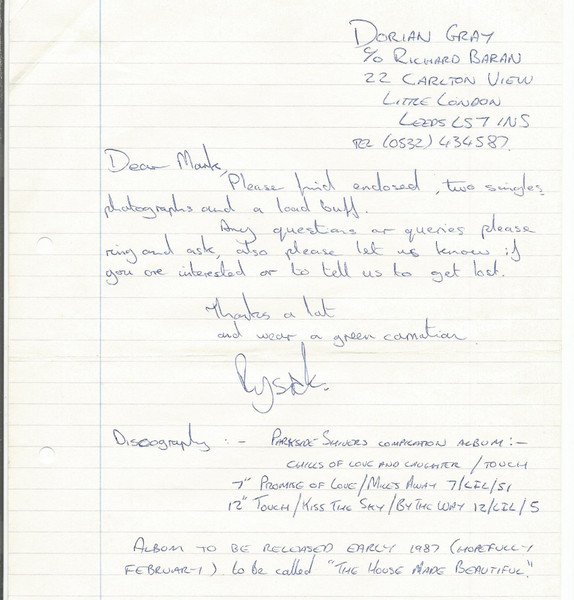 DORIAN GRAY
c/o RICHARD BARAN
22 CARLTON VIEW
LITTLE LONDON
LEEDS LS7 1NS
TEL (0532) 434587.
Dear Mark,
Please find enclosed, two singles
photographs and a load buff.
Any questions or queries please
ring and ask, also please let us know if
you are interested or to tell us to get lost.
Thanks a lot
and wear a green carnation.
Discography :- PARKSIDE SHIVERS COMPILATION ALBUM :-
CHILLS OF LOVE AND LAUGHTER / TOUCH
7" PROMISE OF LOVE / MILES AWAY 7/LIL/S1
12" TOUCH / KISS THE SKY / BY THE WAY 12/LIL/5
ALBUM TO BE RELEASED EARLY 1987 (HOPEFULLY
FEBRUARY) to be called "THE HOUSE MADE BEAUTIFUL".